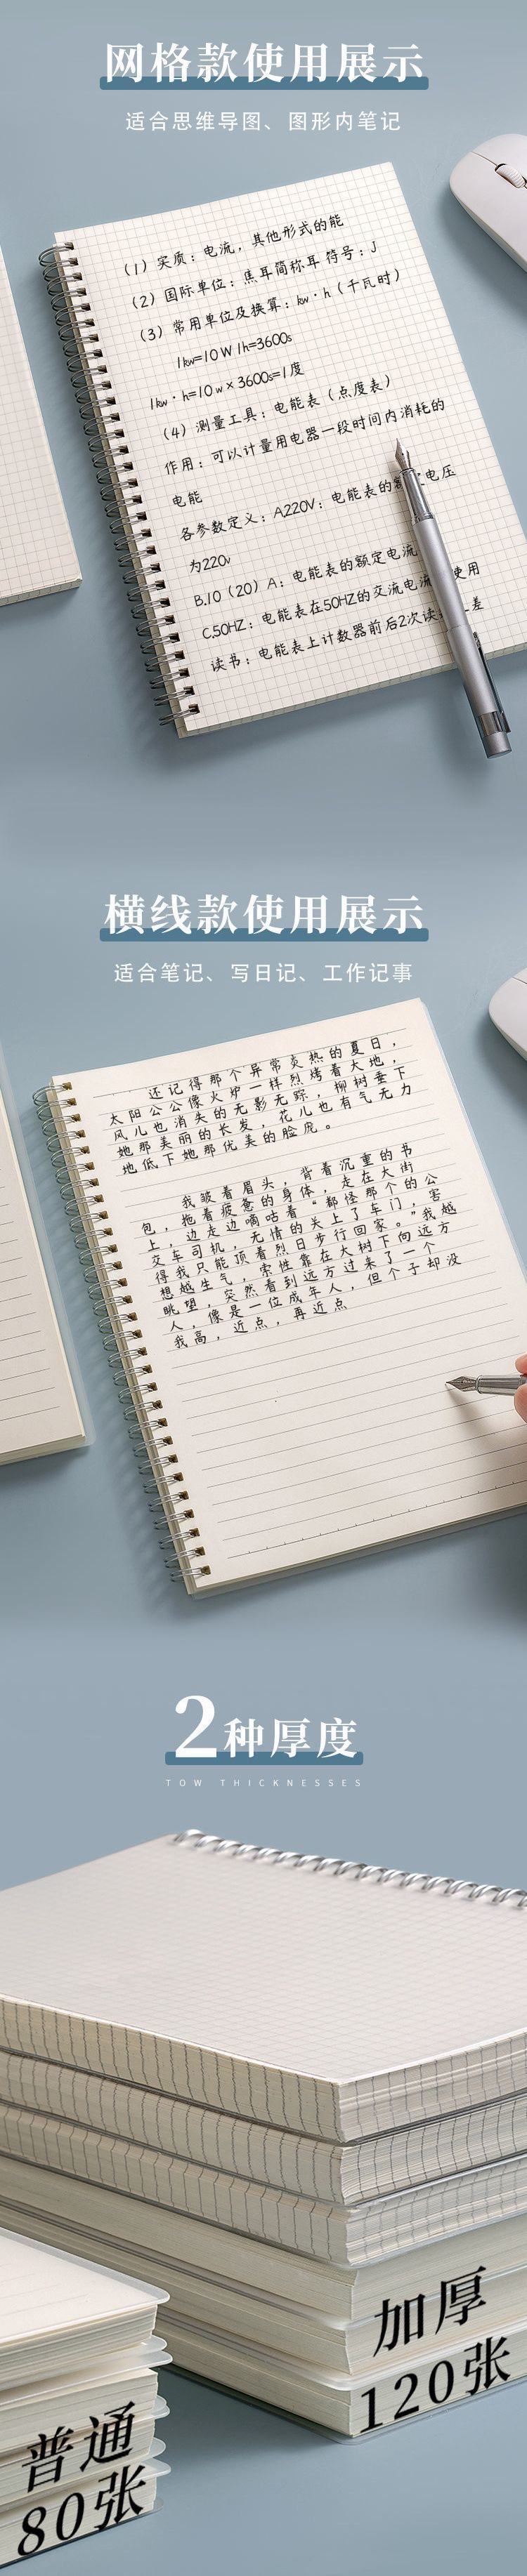 网格款使用展示
适合思维导图、图形内笔记
(1) 实质：电流，其他形式的能
(2) 国际单位：焦耳简称耳 符号：J
(3) 常用单位及换算：kw·h（千瓦时）
1kw=10 W 1h=3600s
1kw·h=10 w×3600s=1度
(4) 测量工具：电能表（点度表）
作用：可以计量用电器一段时间内消耗的
电能
各参数定义：A.220V：电能表的额 电压
为220v
B.10（20）A：电能表的额定电流
C.50HZ：电能表在50HZ的交流电流 使用
读书：电能表上计数器前后2次读 差
横线款使用展示
适合笔记、写日记、工作记事
还记得那个异常炎热的夏日，
太阳公公像火炉一样烈烤着大地，
风儿也消失的无影无踪，柳树垂下
她那美丽的长发，花儿也有气无力
地低下她那优美的脸庞。
我皱着眉头，背着沉重的书
包，拖着疲惫的身体，走在大街
上，边走边嘀咕着“都怪那个的公
交车司机，无情的关上了车门，害
得我只能顶着烈日步行回家。”我越
想越生气，索性靠在大树下向远方
眺望，突然看到远方过来了一个
人，像是一位成年人，但个子却没
我高，近点，再近点
2种厚度
TOW THICKNESSES
加厚
120张
普通
80张